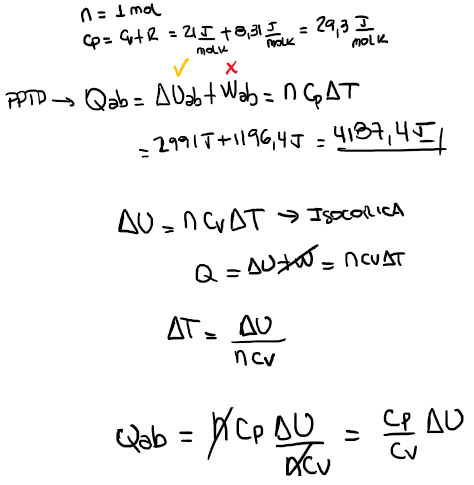 n = 1 mol
Cp = Cv + R = 21 J/molK + 8,31 J/molK = 29,3 J/molK
✓ ×
PPTD → Qab = ΔUab + Wab = n Cp ΔT
= 2991J + 1196,4J = 4187,4J
ΔU = n Cv ΔT → ISOCORICA
Q = ΔU + W = n Cv ΔT
ΔT = ΔU / n Cv
Qab = n Cp ΔU / n Cv = Cp / Cv ΔU